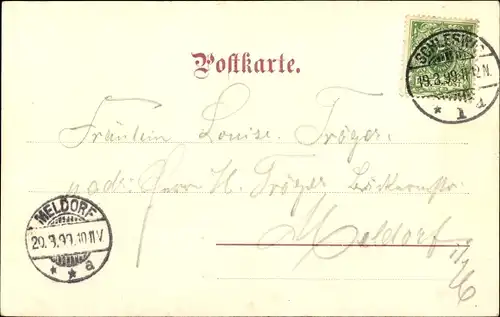 Postkarte.
SCHLESWIG
19.3.99.11-12N.
* 1 d
Fräulein Louise Tröger.
adr: Herrn H. Tröger Bäckermstr.
Meldorf
i/H
MELDORF
20.3.99.10-11V.
* * a